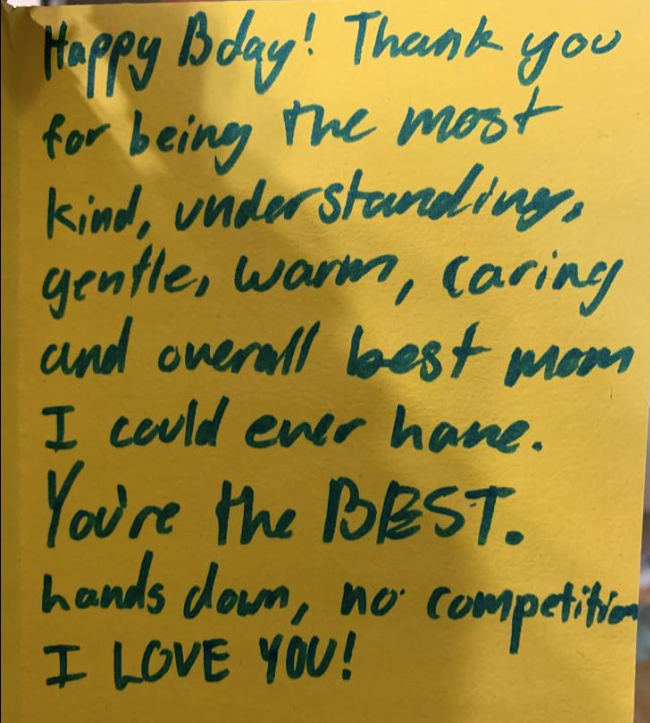 Happy Bday! Thank you
for being the most
kind, understanding,
gentle, warm, caring
and overall best mom
I could ever have.
You're the BEST.
hands down, no competition
I LOVE YOU!